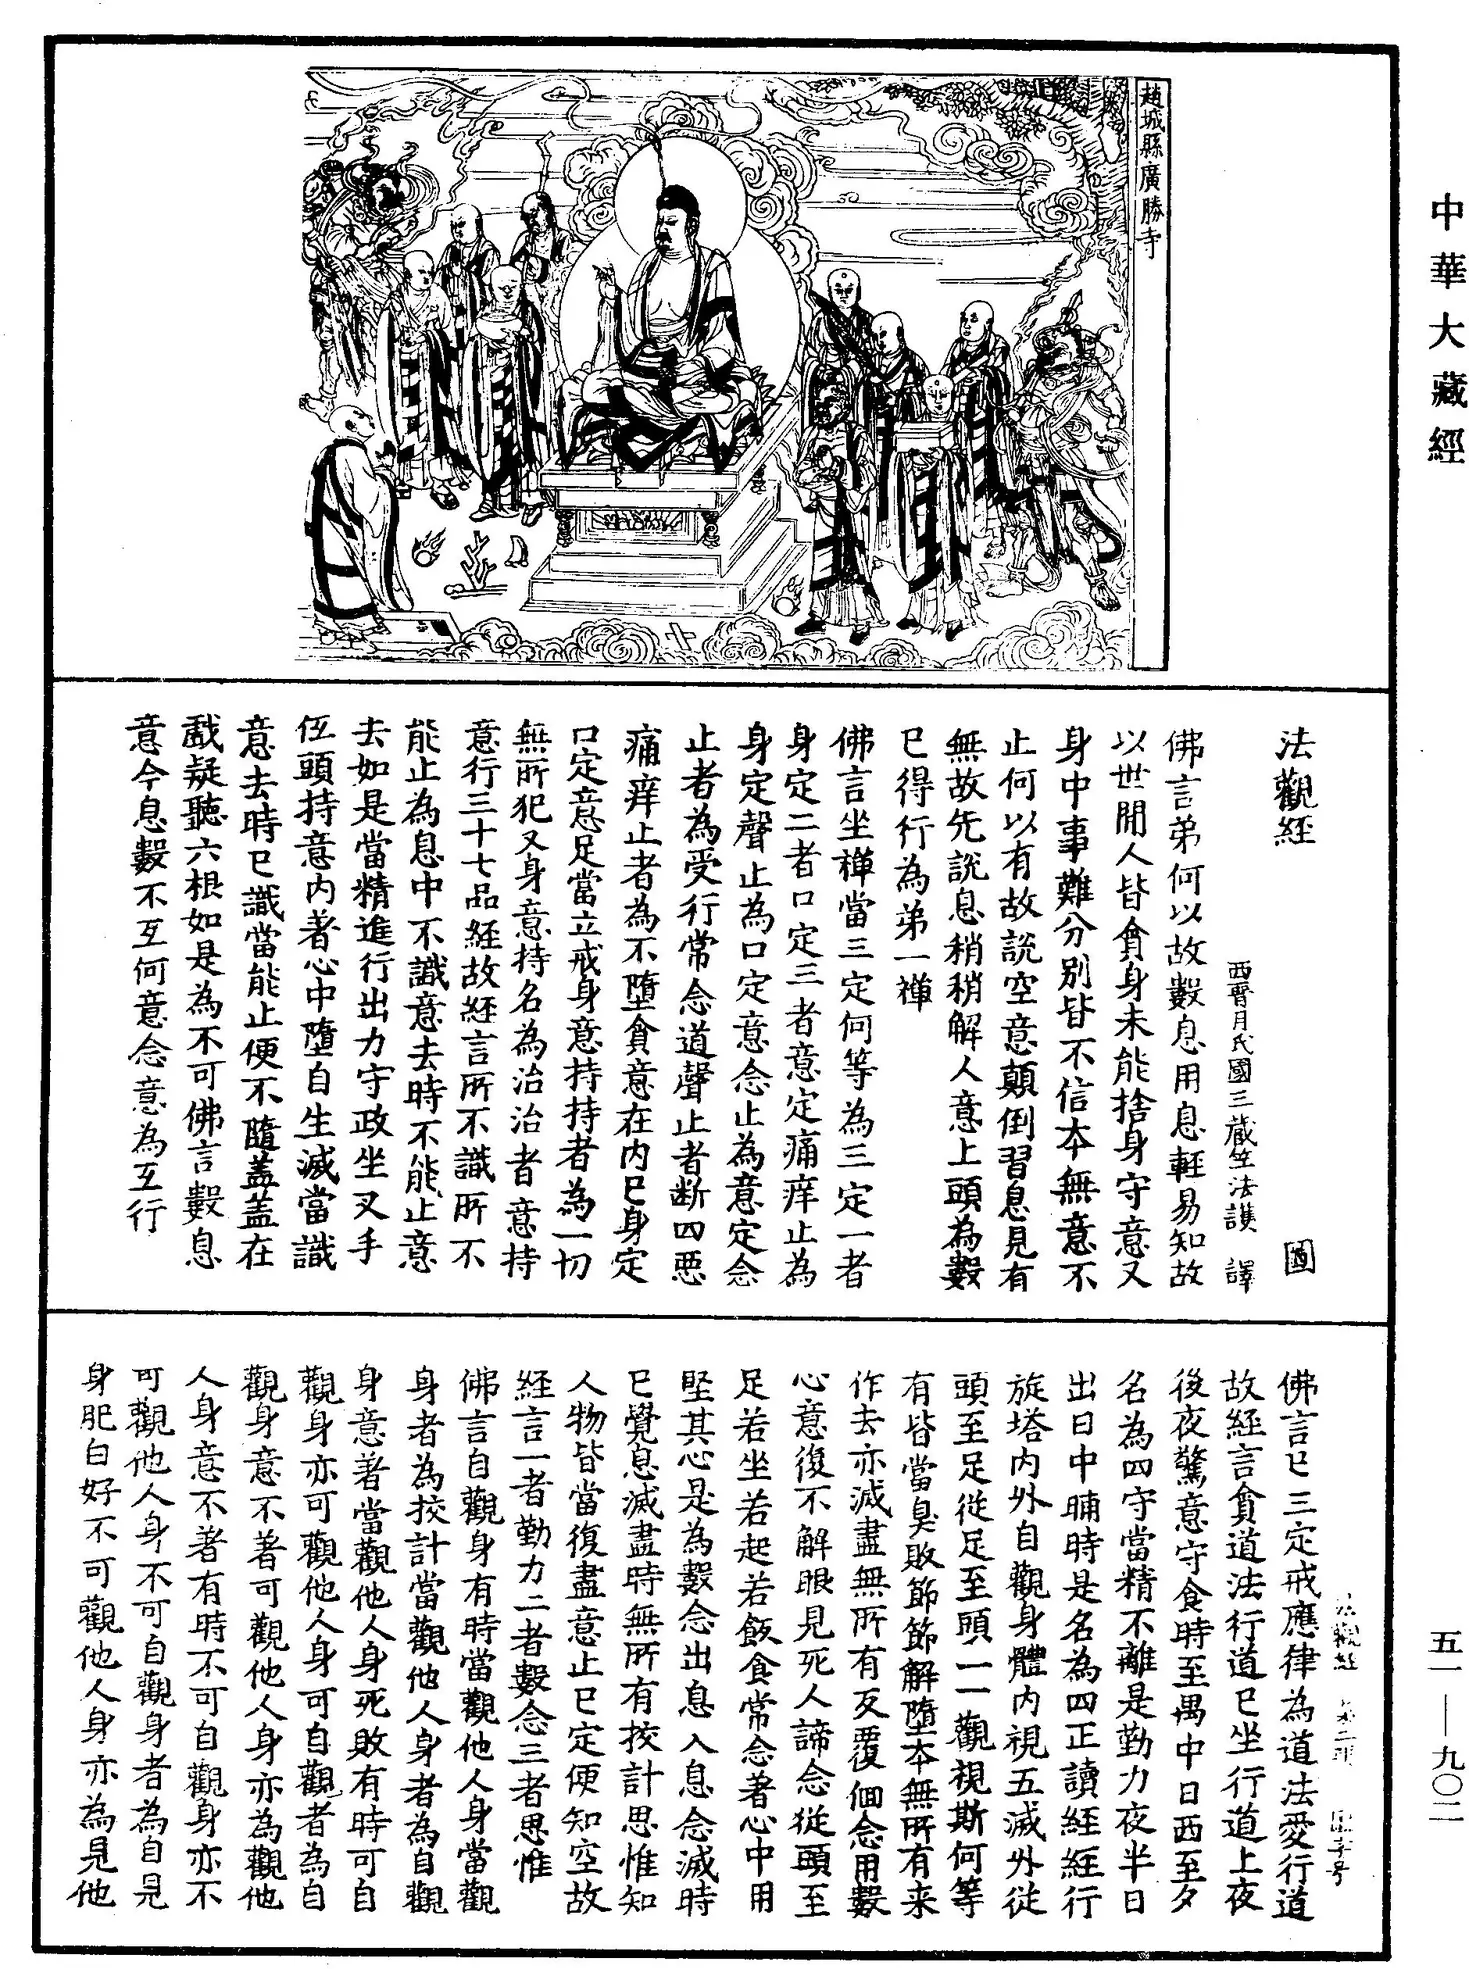 中華大藏經
趙城縣廣勝寺
法觀經
西晉月氏國三藏竺法護 譯
佛言弟何以故數息用息輕易知故
以世間人皆貪身未能捨身守意又
身中事難分別皆不信本無意不
止何以有故說空意顛倒習息見有
無故先說息稍稍解人意上頭為數
已得行為弟一禪
佛言坐禪當三定何等為三定一者
身定二者口定三者意定痛痒止為
身定聲止為口定意念止為意定念
止者為受行常念道聲止者断四惡
痛痒止者為不墮貪意在内已身定
口定意足當立戒身意持持者為一切
無所犯又身意持名為治治者意持
意行三十七品經故經言所不識所不
能止為息中不識意去時不能止意
去如是當精進行出力守政坐叉手
伍頭持意内著心中墮自生滅當識
意去時已識當能止便不隨盖盖在
戲疑聽六根如是為不可佛言數息
意今息數不互何意念意為互行
佛言已三定戒應律為道法愛行道
故經言貪道法行道已坐行道上夜
後夜驚意守食時至禺中日西至夕
名為四守當精不離是勤力夜半日
出日中晡時是名為四正讀經經行
旋塔内外自觀身體内視五滅外從
頭至足從足至頭一一觀視斯何等
有皆當臭敗節節解墮本無所有来
作去亦滅盡無所有反覆佪念用數
心意復不解眼見死人諦念從頭至
足若坐若起若飯食常念著心中用
堅其心是為數念出息入息念滅時
已覺息滅盡時無所有挍計思惟知
人物皆當復盡意止已定便知空故
經言一者勤力二者數念三者思惟
佛言自觀身有時當觀他人身當觀
身者為挍計當觀他人身者為自觀
身意著當觀他人身死敗有時可自
觀身亦可觀他人身可自觀者為自
觀身意不著可觀他人身亦為觀他
人身意不著有時不可自觀身亦不
可觀他人身不可自觀身者為自見
身肥白好不可觀他人身亦為見他
五一—九〇二